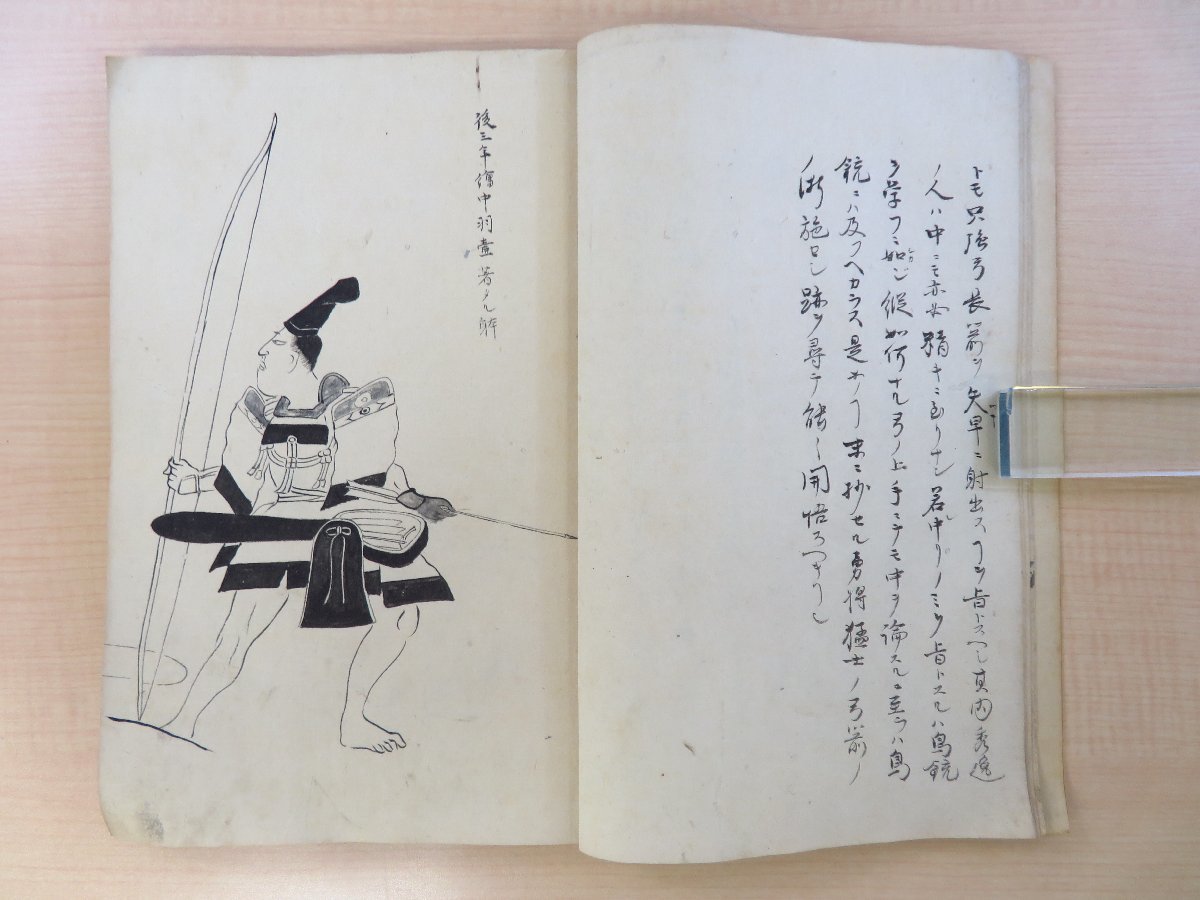 トモ只強弓長箭ヲ矢早ニ射出スヿヲ旨トスヘシ其内秀逸
ノ人ハ中ニモ亦妙精キニ至リナン若中リノミヲ旨トスルハ鳥銃
ヲ学フニ如ジ縦如何ナル弓ノ上手ニテモ中ヲ論スルニ至ラハ鳥
銃ニハ及フヘカラス是ヨリ末ニ抄セル勇将猛士ノ弓箭ノ
術施セシ跡ヲ尋テ能ク開悟スヘキナリ
後三年繪中羽壷著タル躰